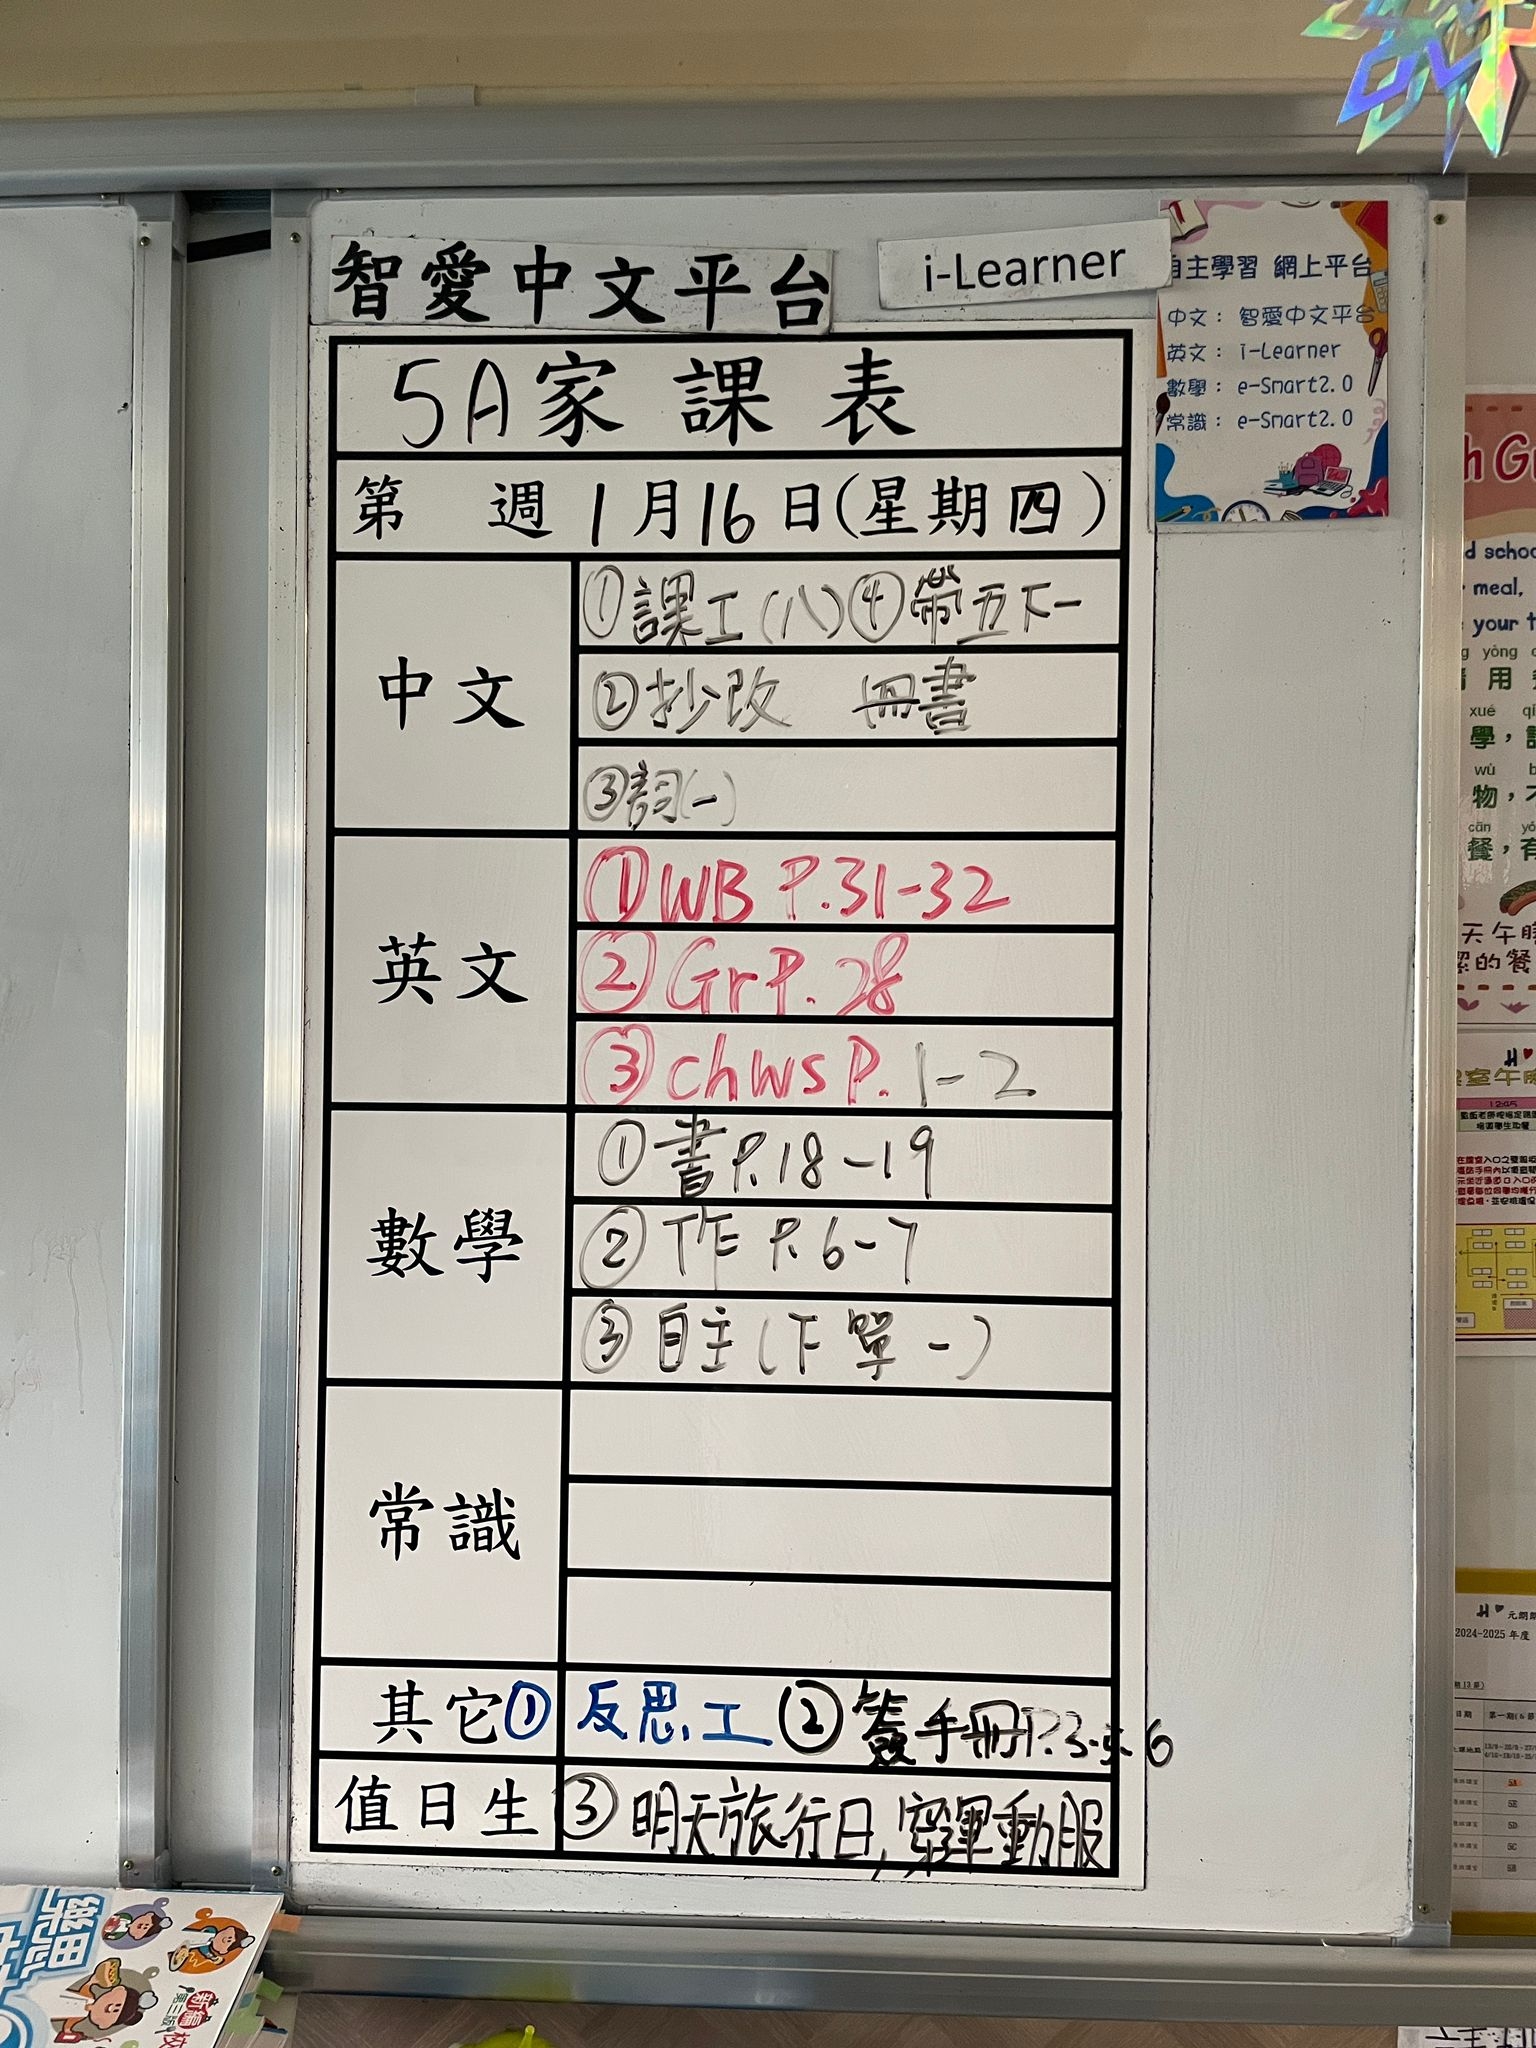 智愛中文平台
i-Learner
自主學習 網上平台
中文：智愛中文平台
英文：i-Learner
數學：e-Smart2.0
常識：e-Smart2.0
5A家課表
第 週 1月16日(星期四)
中文
①課工(八)④帶五下一
②抄改 冊書
③詞(一)
英文
①WB P.31-32
②Gr P.28
③chws P.1-2
數學
①書P.18-19
②作 P.6-7
③自主(下單一)
常識
其它① 反思工 ②簽手冊P.3-5-6
值日生 ③明天旅行日,穿運動服
h G
d schoo
meal,
your t
yòng
用
xué
學，
wù
物，
cān
餐，有
天午膳
潔的餐
12:45
2024-2025 年度
日期